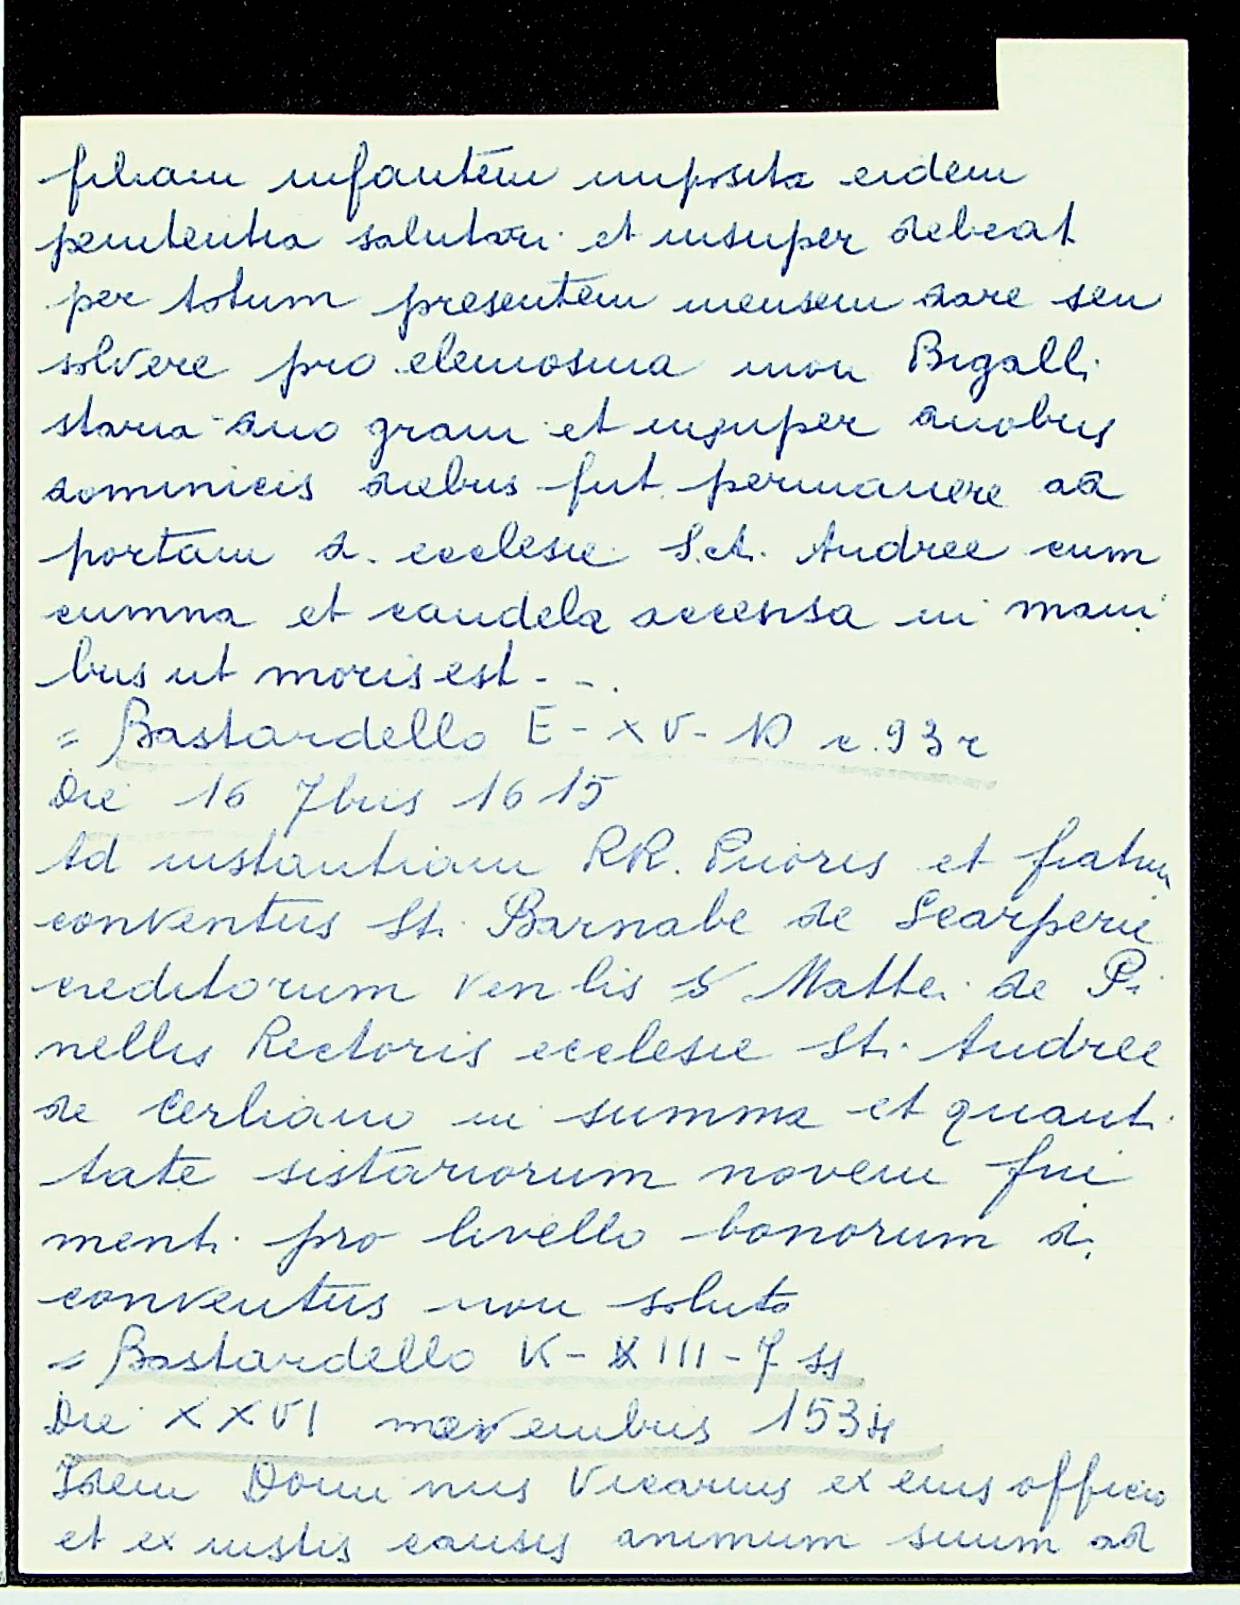 filiam infantem imposita eidem
penitentia salutari et insuper debeat
per totum presentem mensem dare seu
solvere pro elemosina mon Bigalli
staria duo grani et insuper duobus
dominicis diebus fut. permanere ad
portam d. ecclesie S.ct. Andree cum
cumna et candela accensa in mani
bus ut moris est - - .
= Bastardello E - XV - 10 c. 93 r
Die 16 7bris 1615
Ad instantiam RR. Prioris et fratrum
conventus St. Barnabe de Scarperie
creditorum Ven lis Mattei de Pi
nellis Rectoris ecclesie St. Andree
de Cerliano in summa et quanti
tate sistariorum novem fru
menti pro livello bonorum d.
conventus non soluto
= Bastardello K - XIII - 7 ss
Die XXVI novembris 1534
Idem Dominus Vicarius ex eius officio
et ex iustis causis animum suum ad